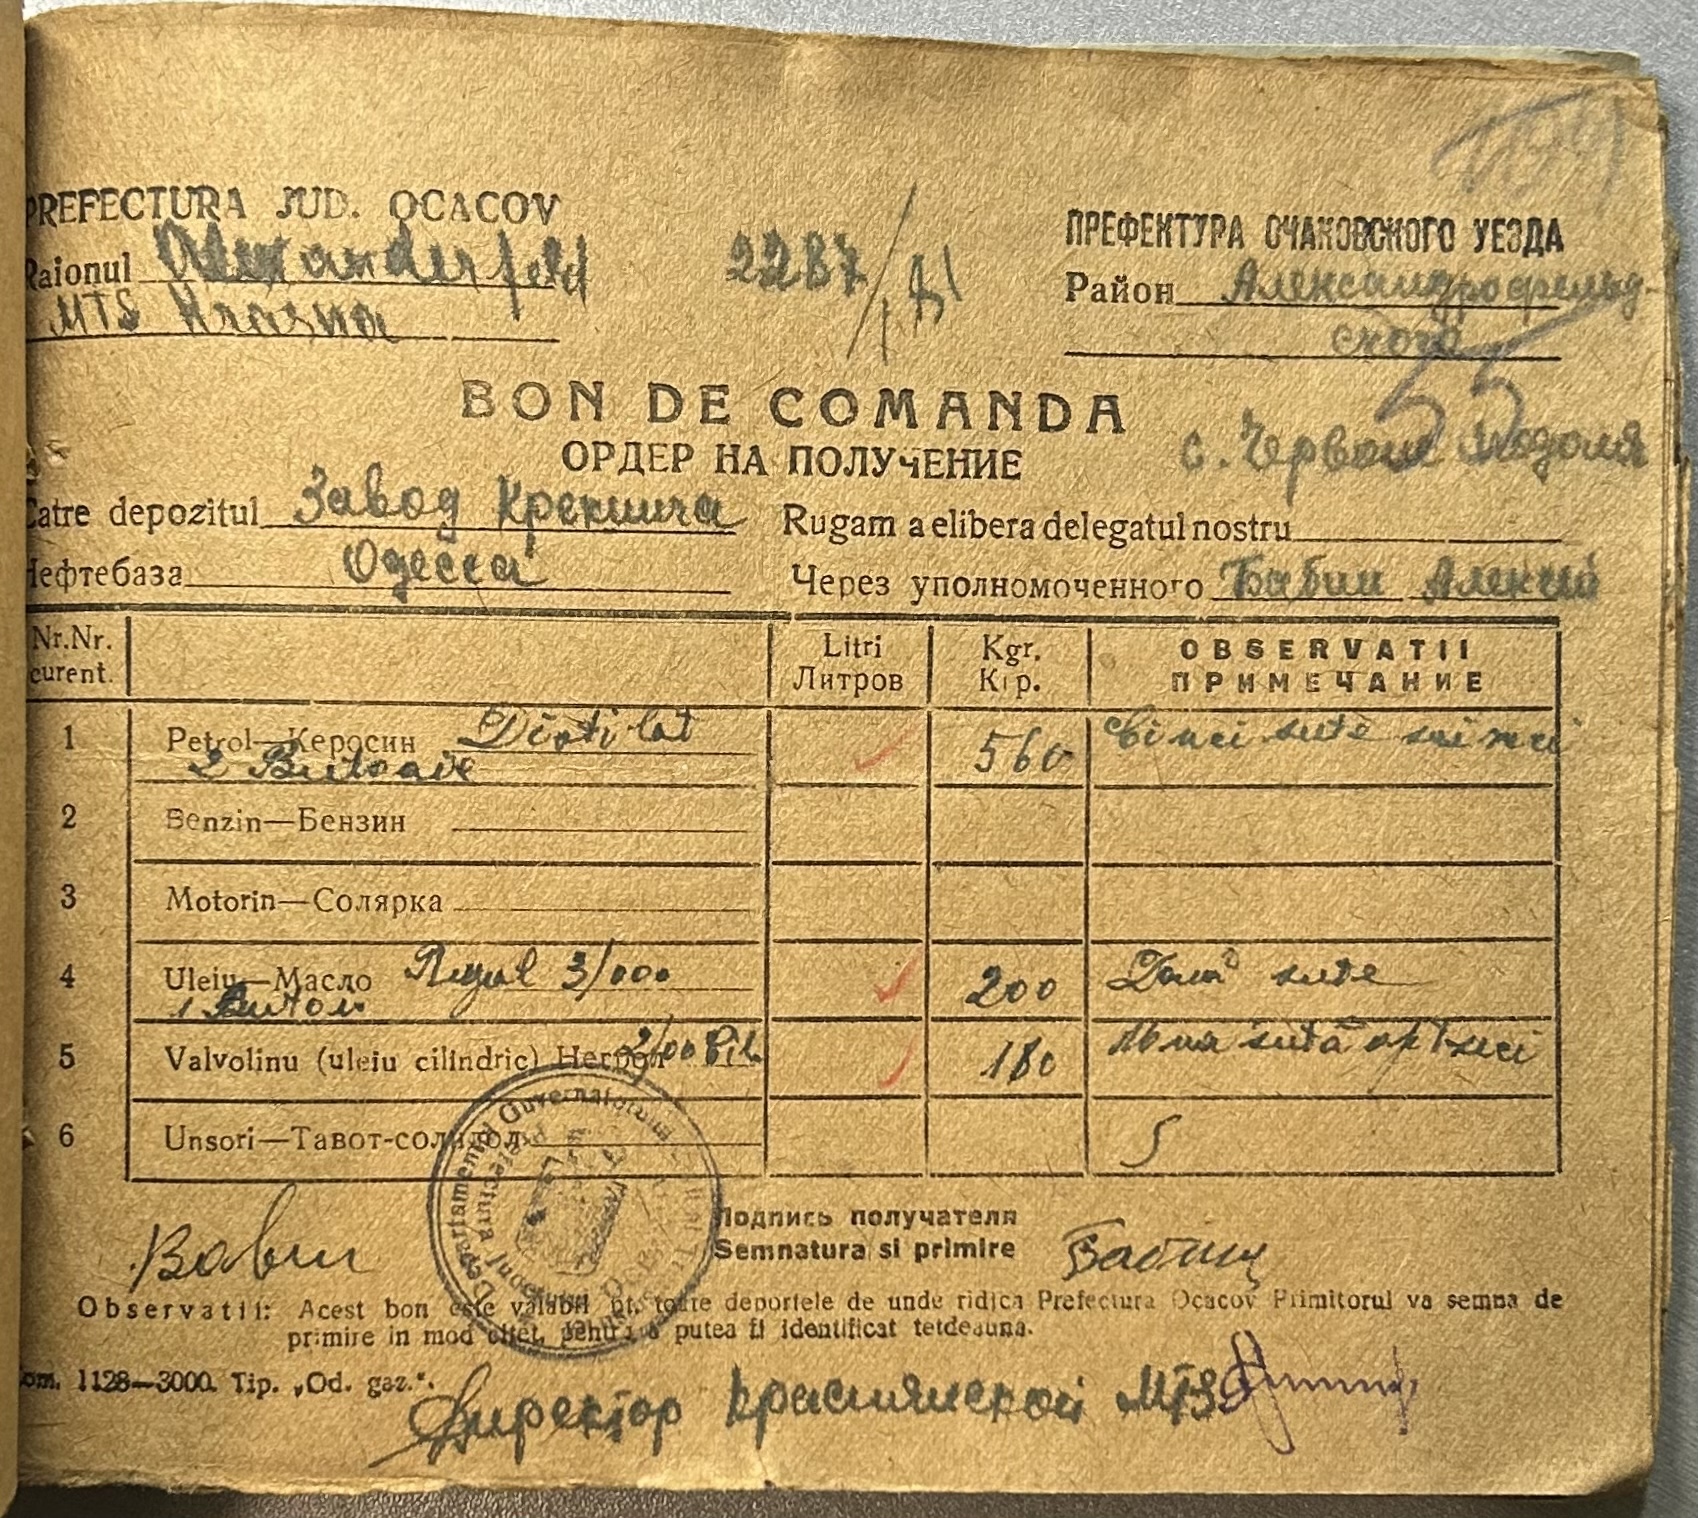 PREFECTURA JUD. OCACOV
Raionul Alexanderfeld
MTS Krasna
2287
ПРЕФЕКТУРА ОЧАКОВСКОГО УЕЗДА
Район Александрофельд-
ского
55
BON DE COMANDA
ОРДЕР НА ПОЛУЧЕНИЕ
с. Червоне Подолля
Catre depozitul Завод Крекинга
Rugam a elibera delegatul nostru
Нефтебаза Одесса
Через уполномоченного Бабин Алексей
Nr.Nr. curent.
Litri Литров
Kgr. Кгр.
OBSERVATII ПРИМЕЧАНИЕ
1 Petrol—Керосин Distilat 560 Cinci sute sai zeci
2 Butoaie
2 Benzin—Бензин
3 Motorin—Солярка
4 Uleiu—Масло 3/000 200 Doua sute
1 Butoiu
5 Valvolinu (uleiu cilindric) Негрол Cil. 180 una suta optzeci
6 Unsori—Тавот-солидол
Departamentul Guvernatorului
Prefectura
Подпись получателя
Semnatura si primire
Babin
Бабин
Observatii: Acest bon este valabil pt. toate deportele de unde ridica Prefectura Ocacov Primitorul va semna de
primire in mod citet, pentru a putea fi identificat tetdeauna.
Com. 1128—3000. Tip. „Od. gaz.“.
Директор Краснянской МТS